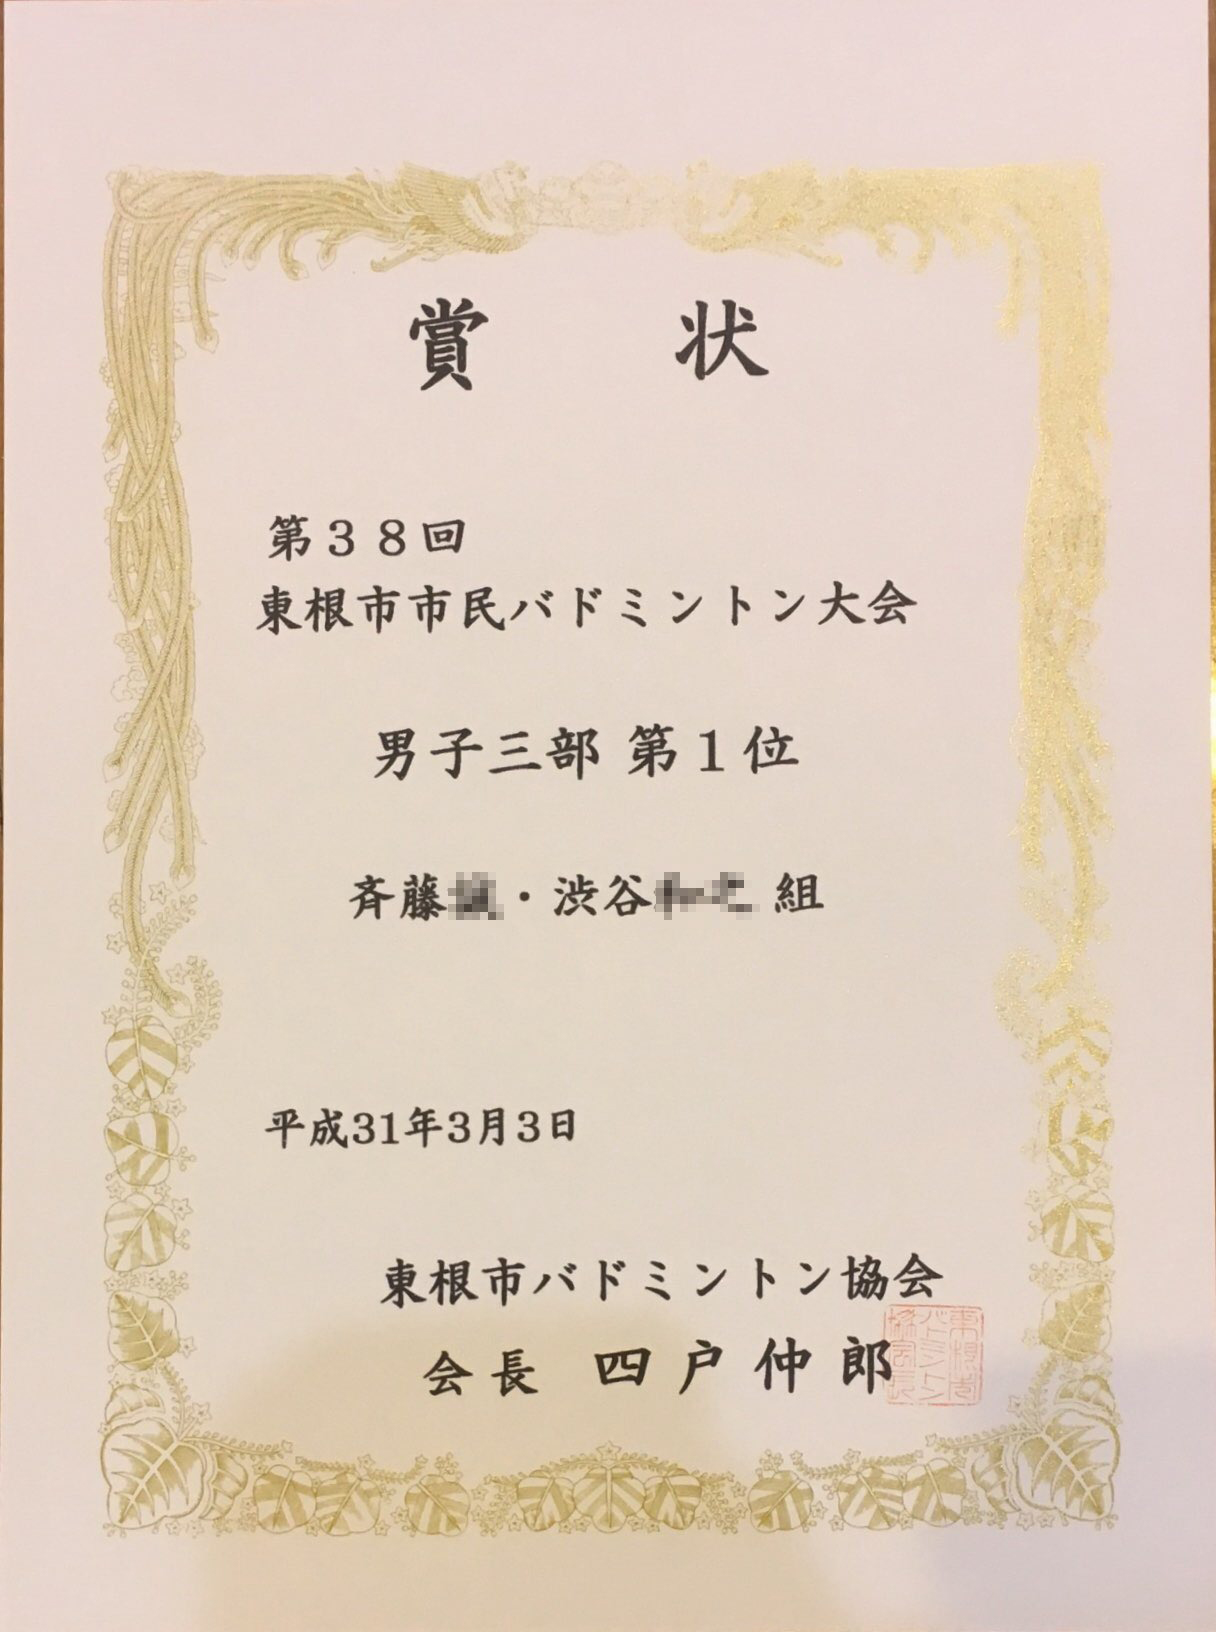 賞状
第３８回
東根市市民バドミントン大会
男子三部 第１位
斉藤・渋谷 組
平成31年3月3日
東根市バドミントン協会
会長 四戸仲郎
東根市バドミントン協会長